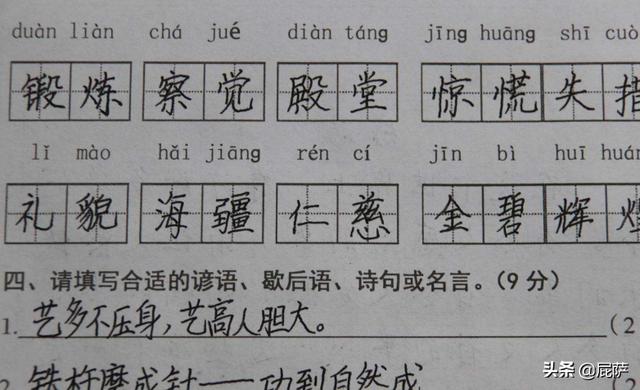 duàn liàn chá jué diàn táng jīng huāng shī cuò
锻炼 察觉 殿堂 惊慌失措
lǐ mào hǎi jiāng rén cí jīn bì huī huán
礼貌 海疆 仁慈 金碧辉煌
四、请填写合适的谚语、歇后语、诗句或名言。(9分)
1. 艺多不压身,艺高人胆大。 (2
2. 铁杵磨成针——功到自然成
头条 @屁萨